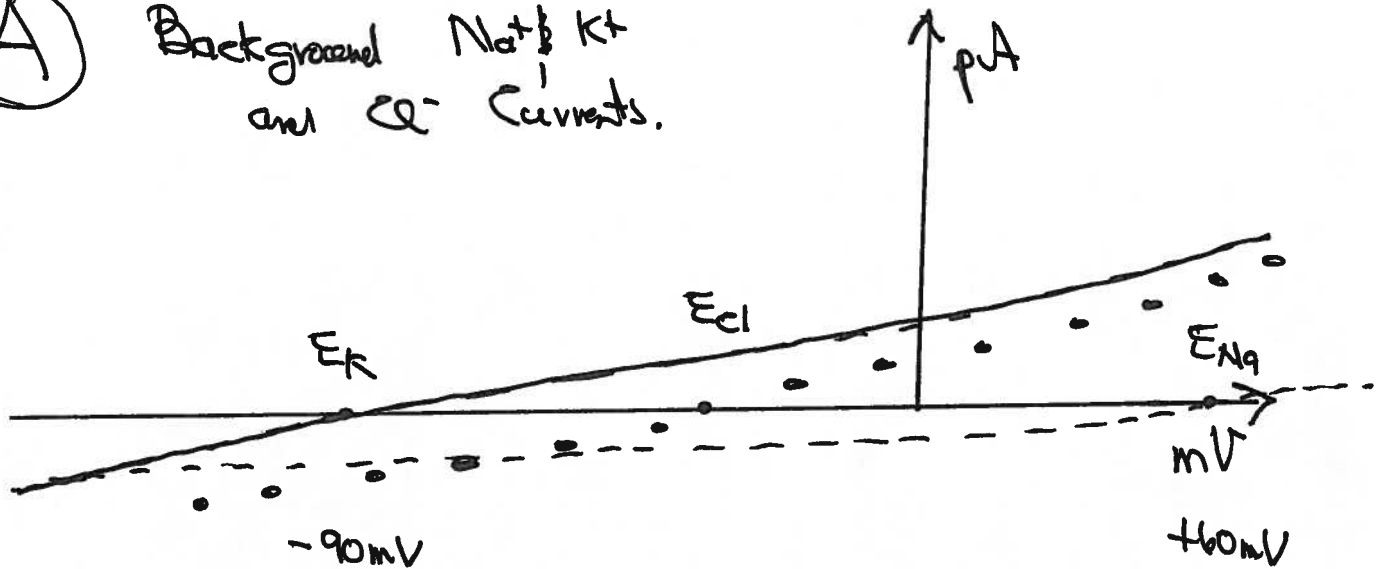 A
Background Na+ & K+
and Cl- Currents.
pA
ECl
EK
ENa
mV
-90mV
+60mV